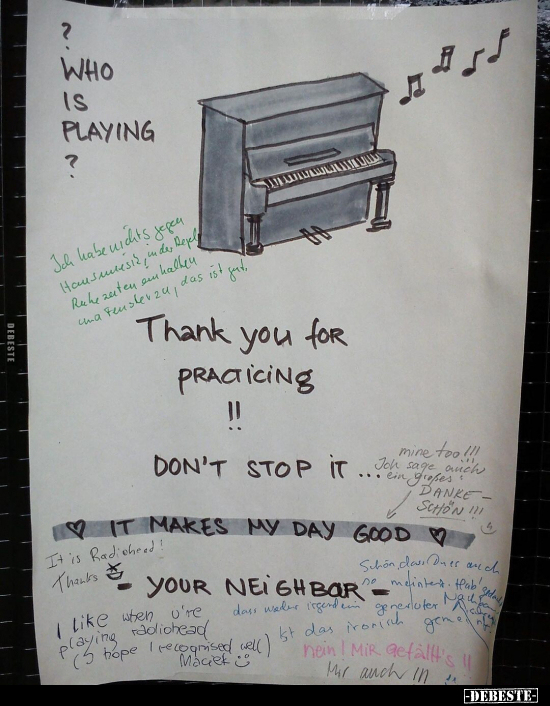 ?
WHO
IS
PLAYING
?
Ich habe nichts gegen
Hausmusik, in der Regel
Ruhezeiten einhalten
und Fenster zu, das ist gut.
Thank you for
PRACTICING
!!
DON'T STOP iT ...
mine too!!!
Ich sage auch
ein großes:
DANKE-
SCHÖN!!!
♡ IT MAKES MY DAY GOOD ♡
It is Radiohead!
Thanks
- YOUR NEIGHBOR -
Schön, dass du es auch
so meintest. Hab'
dass wieder irgendein genervter
Ist das ironisch gemeint?
I Like when u're
playing radiohead
(I hope I recognised well)
Maciek
nein! Mir gefällt's!!
Mir auch!!!
DEBESTE
-DEBESTE-